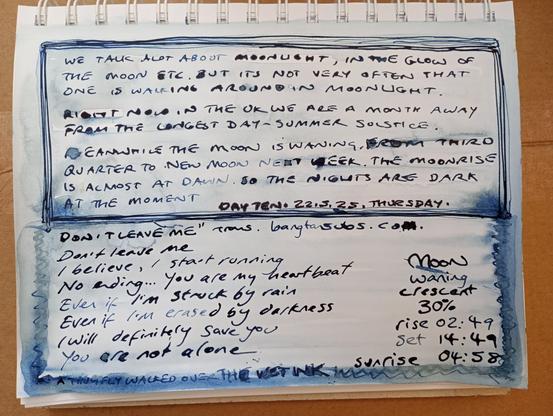 WE TALK ALOT ABOUT MOONLIGHT, IN THE GLOW OF
THE MOON ETC. BUT ITS NOT VERY OFTEN THAT
ONE IS WALKING AROUND IN MOONLIGHT.
RIGHT NOW IN THE UK WE ARE A MONTH AWAY
FROM THE LONGEST DAY - SUMMER SOLSTICE.
MEANWHILE THE MOON IS WANING, FROM THIRD
QUARTER TO NEW MOON NEXT WEEK. THE MOONRISE
IS ALMOST AT DAWN. SO THE NIGHTS ARE DARK
AT THE MOMENT DAY TEN. 22.5.25. THURSDAY.
DON'T LEAVE ME" trans. bangtansubs.com.
Don't leave me
I believe, I start running
No ending... You are my heartbeat
Even if I'm struck by rain
Even if I'm erased by darkness
I will definitely save you
You are not alone
MOON
waning
crescent
30%
rise 02:49
set 14:49
sunrise 04:58
WALKED OVER THE WET INK